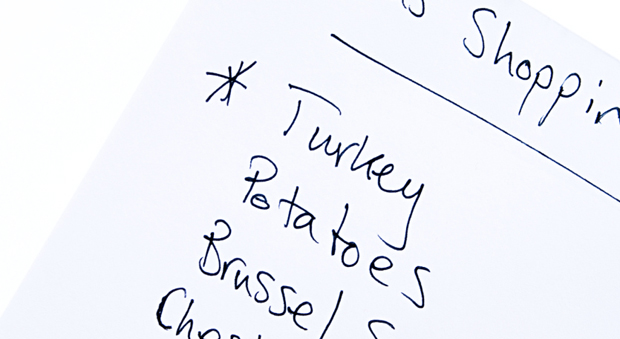 Shoppin
* Turkey
Potatoes
Brussel S